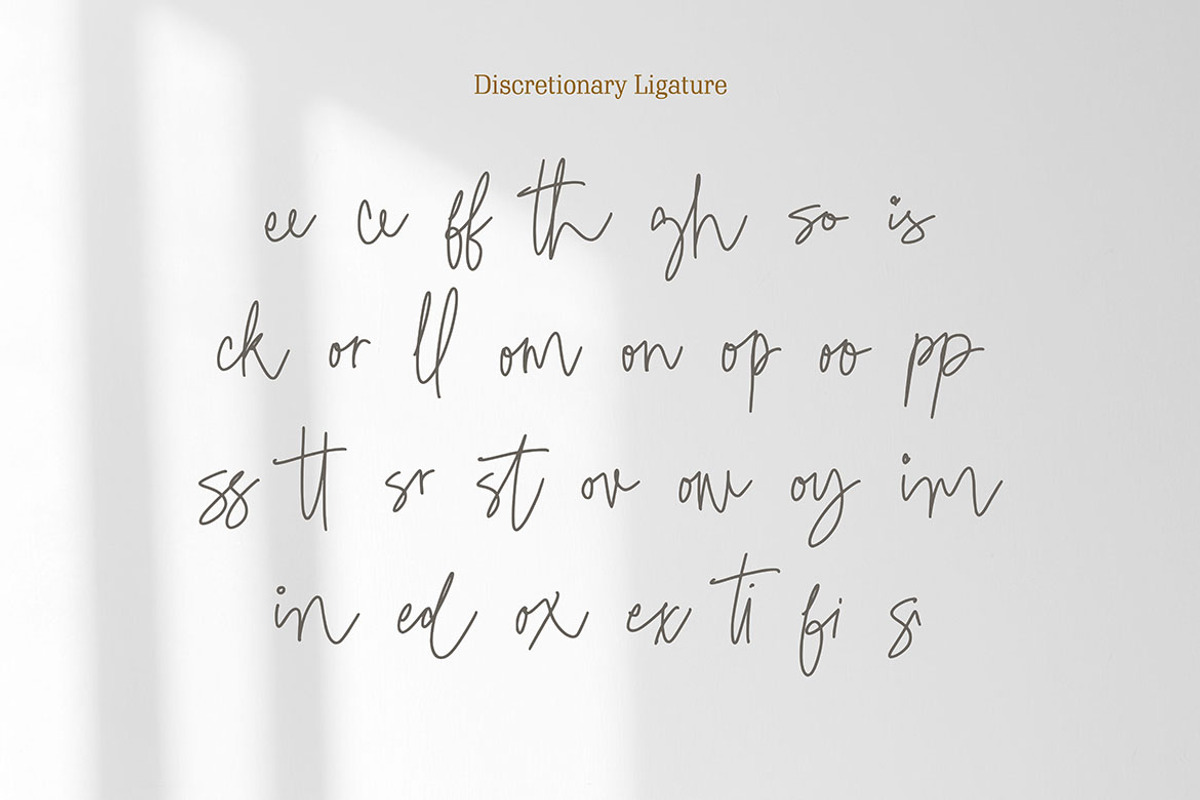 Discretionary Ligature
ee ce ff th gh so is
ck or ll om on op oo pp
ss tt sr st ov ow oy im
in ed ox ex ti fi si